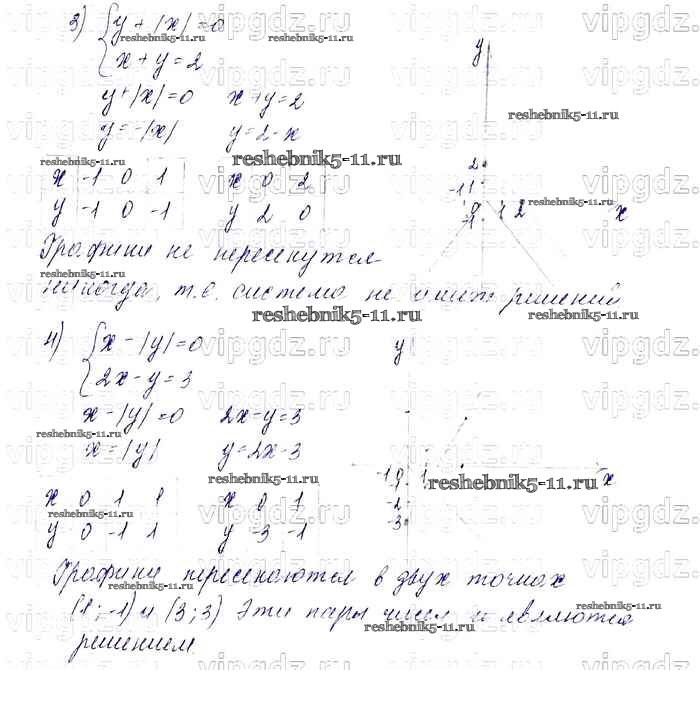 3) { y + |x| = 0
x + y = 2
y + |x| = 0   x + y = 2
y = -|x|   y = 2 - x
x -1 0 1   x 0 2
y -1 0 -1   y 2 0
Графики не пересекутся
никогда, т.е. система не имеет решений
y
2
-1 1
0 1 2 x
-1
4) { x - |y| = 0
2x - y = 3
x - |y| = 0   2x - y = 3
x = |y|   y = 2x - 3
x 0 1 1   x 0 1
y 0 -1 1   y -3 -1
Графики пересекаются в двух точках
(1; -1) и (3; 3) Эти пары чисел и являются
решением
y
-1 0 1 x
-1
-2
-3
reshebnik5-11.ru
vipgdz.ru